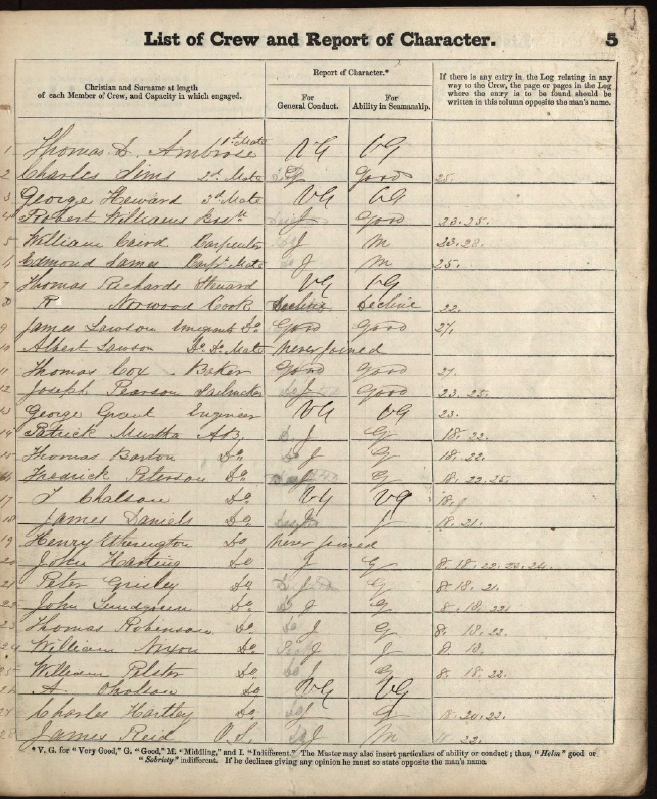 List of Crew and Report of Character. 5
Report of Character.*
Christian and Surname at length
of each Member of Crew, and Capacity in which engaged.
For
General Conduct.
For
Ability in Seamanship.
If there is any entry in the Log relating in any
way to the Crew, the page or pages in the Log
where the entry is to be found should be
written in this column opposite the man's name.
1 Thomas D. Ambrose 1st Mate VG VG
2 Charles Sims 2d Mate Good 25.
3 George Heward 3d Mate VG VG
4 Robert Williams Good 23.25.
5 William Caird Carpenter M 23.28.
6 Edmond James Carp. Mate M 25.
7 Thomas Richards Steward VG VG
8 R Norwood Cook Decline Decline 22.
9 James Lawson Do Good Good 27.
10 Albert Lawson Do. Do. Mate never joined
11 Thomas Cox Baker Good Good 21.
12 Joseph Pearson Sailmaker Good 23.25.
13 George Grant Engineer VG VG 23.
14 Patrick Murtha AB. G 18.22.
15 Thomas Barton Do G 18.22.
16 Fredrick Peterson Do G 18.22.25.
17 Chalson Do VG VG 18.
18 James Daniels Do 18.21.
19 Henry Etherington Do never joined
20 John Harting Do G 8.18.22.23.24.
21 Peter Grisley Do G 8.18.21.
22 John Lundgreen Do G 8.18.22.
23 Thomas Robinson Do G 8.18.22.
24 William Nixon Do 8.18.
25 William Do G 8.18.22.
26 A. Do VG VG
27 Charles Hartley Do G 18.20.22.
28 James Reid O.S. M 22.
* V. G. for "Very Good," G. "Good," M. "Middling," and I. "Indifferent." The Master may also insert particulars of ability or conduct; thus, "Helm" good or
"Sobriety" indifferent. If he declines giving any opinion he must so state opposite the man's name.